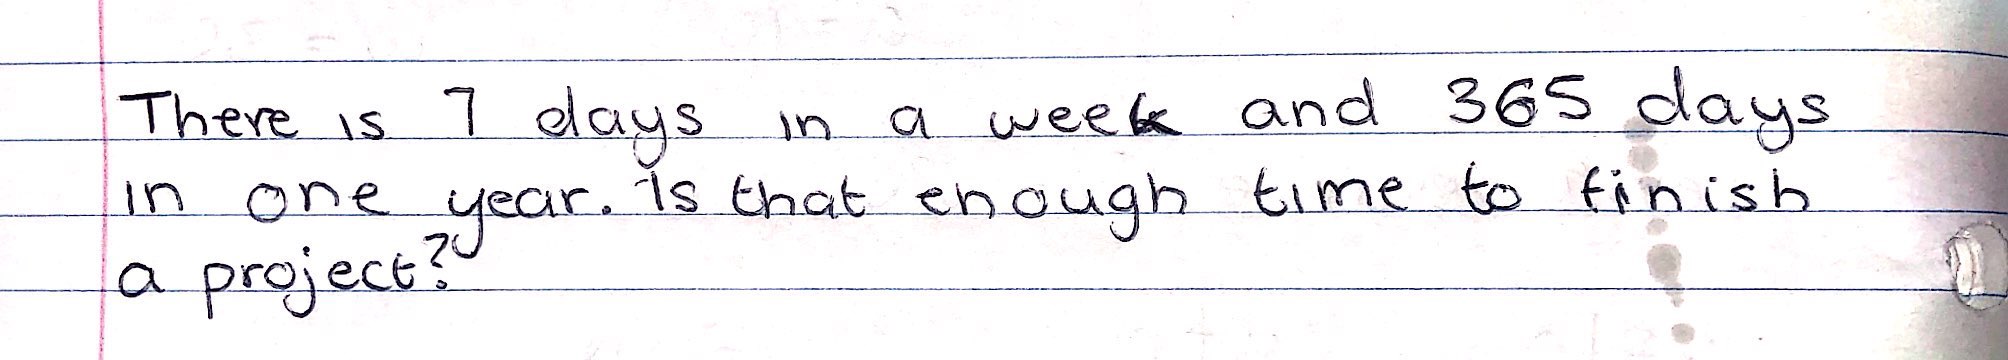 There is 7 days in a week and 365 days
in one year. Is that enough time to finish
a project?